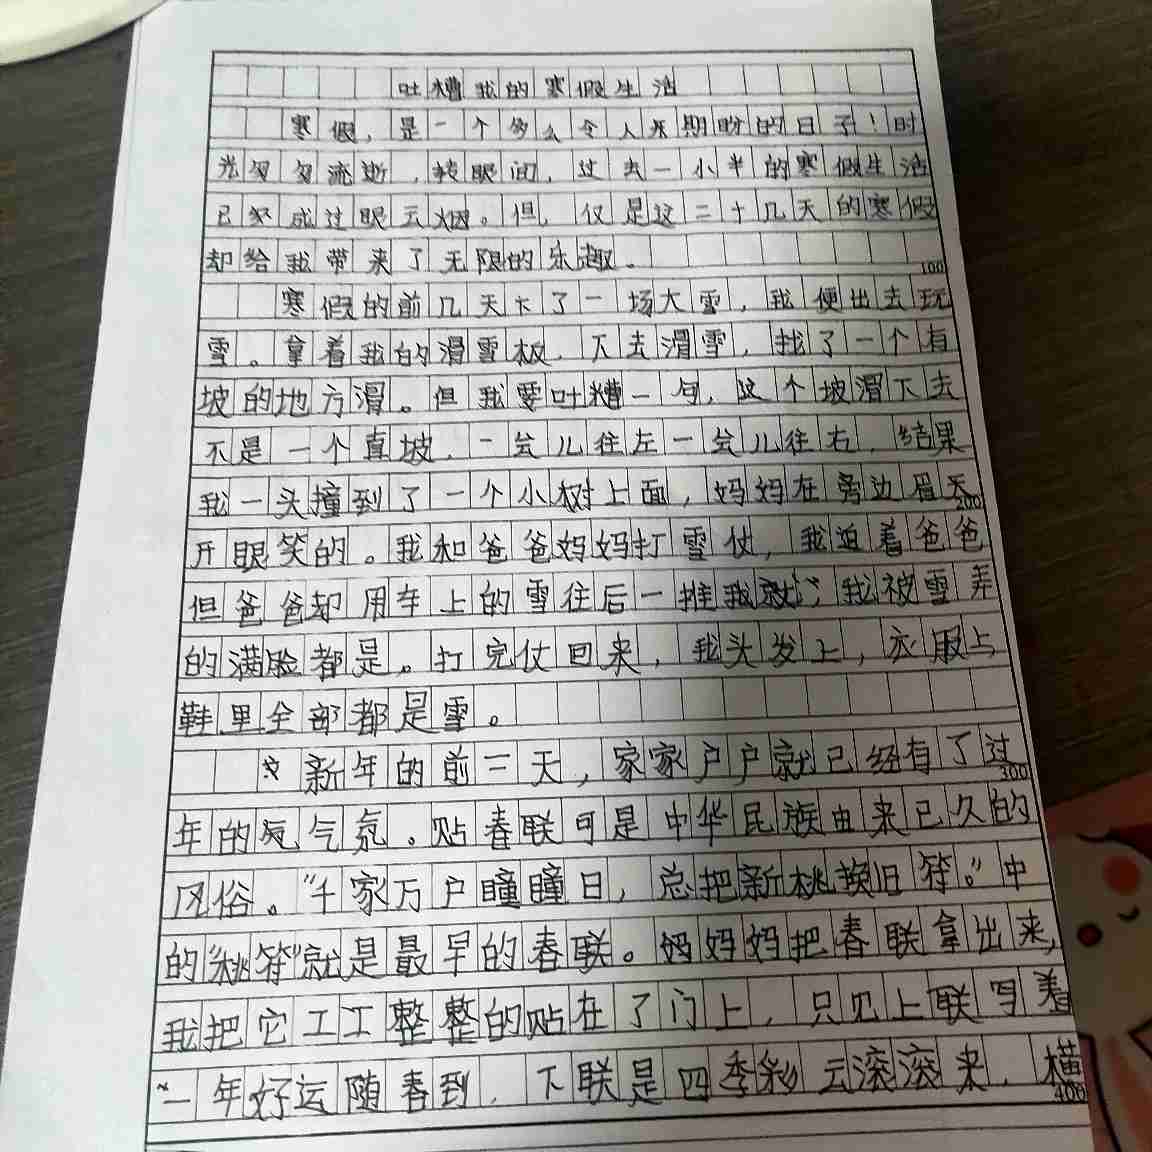 吐槽我的寒假生活
寒假，是一个多么令人来期盼的日子！时
光匆匆流逝，转眼间，过去一小半的寒假生活
已组成过眼云烟。但，仅是这二十几天的寒假
却给我带来了无限的乐趣。
100
寒假的前几天下了一场大雪，我便出去玩
雪。拿着我的滑雪板，下去滑雪，找了一个有
坡的地方滑。但我要吐糟一句，这个坡滑下去
不是一个直坡，一会儿往左一会儿往右，结果
我一头撞到了一个小树上面，妈妈在旁边眉天
200
开眼笑的。我和爸爸妈妈打雪仗，我追着爸爸
但爸爸却用车上的雪往后一推我就，我被雪弄
的满脸都是。打完仗回来，我头发上，衣服上，
鞋里全部都是雪。
新年的前三天，家家户户就已经有了过
300
年的气氛。贴春联可是中华民族由来已久的
风俗。“千家万户瞳瞳日，总把新桃换旧符。”中
的“桃符”就是最早的春联。妈妈妈把春联拿出来，
我把它工工整整的贴在了门上，只见上联写着
“一年好运随春到，下联是四季彩云滚滚来，横
400